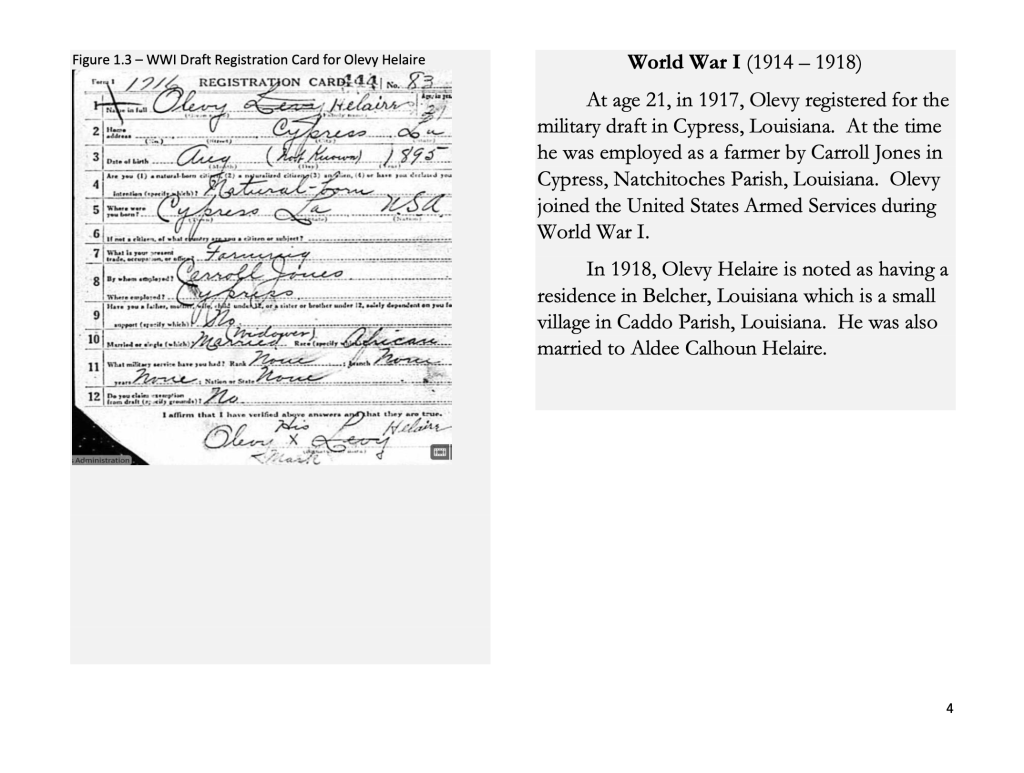 Figure 1.3 – WWI Draft Registration Card for Olevy Helaire
Form 1 1716 REGISTRATION CARD 144 No. 83
1 Name in full Olevy Levy Helaire Age, in yrs. 21
2 Home address Cypress La
3 Date of birth Aug (Not Known) 1895
4 Are you (1) a natural-born citizen (2) a naturalized citizen (3) an alien, (4) or have you declared your
intention (specify which)? Natural-born
5 Where were you born? Cypress La USA
6 If not a citizen, of what country are you a citizen or subject?
7 What is your present trade, occupation, or office? Farming
8 By whom employed? Carroll Jones
Where employed? Cypress
9 Have you a father, mother, wife, child under 12, or a sister or brother under 12, solely dependent on you for
support (specify which)? No
10 Married or single (which)? Married (Widower) Race (specify which)? African
11 What military service have you had? Rank None ; branch None
years None ; Nation or State None
12 Do you claim exemption from draft (specify grounds)? No.
I affirm that I have verified above answers and that they are true.
Olevy His X Mark Levy Helaire
Administration
World War I (1914 – 1918)
At age 21, in 1917, Olevy registered for the
military draft in Cypress, Louisiana. At the time
he was employed as a farmer by Carroll Jones in
Cypress, Natchitoches Parish, Louisiana. Olevy
joined the United States Armed Services during
World War I.
In 1918, Olevy Helaire is noted as having a
residence in Belcher, Louisiana which is a small
village in Caddo Parish, Louisiana. He was also
married to Aldee Calhoun Helaire.
4